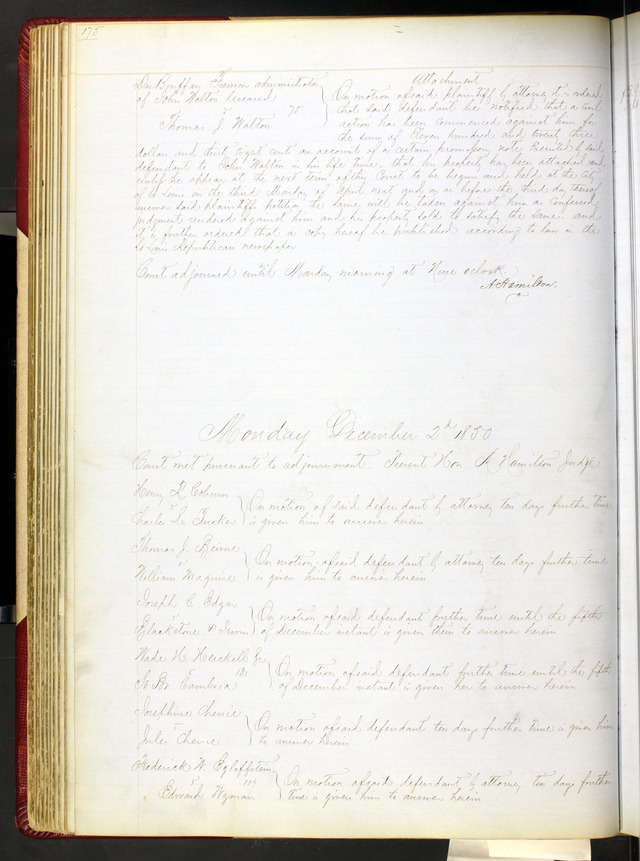 175
Attachment
Du Bouffay Fremon administrator
of John Walton deceased
v 75
Thomas J. Walton
On motion of said plaintiff by attorney it is ordered
that said defendant be notified that a civil
action has been commenced against him for
the sum of Eleven hundred and twenty three
dollars and thirty eight cents on account of a certain promissory note, executed by said
defendant to John Walton in his life time, that his property has been attached and
unless he appear at the next term of this Court to be begun and held at the City
of St Louis on the third Monday of April next and on or before the third day thereof
answer said plaintiffs petition the same will be taken against him as confessed
judgment rendered against him and his property sold to satisfy the same and
it is further ordered that a copy hereof be published according to law in the
St Louis Republican newspaper
Court adjourned until Monday morning at Nine oclock
A. Hamilton.
Monday December 2d 1850
Court met pursuant to adjournment. Present Hon A. Hamilton Judge
Henry R Coburn
v
Charles L. Tucker
On motion of said defendant by attorney ten days further time
is given him to answer herein
Thomas J. Beirne
v
William Maguire
On motion of said defendant by attorney ten days further time
is given him to answer herein
Joseph C Edgar
v
Blackstone & Irwin
On motion of said defendant further time until the fifth
of December instant is given them to answer herein
Wade H Heiskell &c
v 131
St Bt Cambria
On motion of said defendant further time until the fifth
of December instant is given her to answer herein
Josephine Chenie
v
Jules Chenie
On motion of said defendant ten days further time is given him
to answer herein
Frederick W. Egloffstein
v 109
Edward Wyman
On motion of said defendant by attorney ten days further
time is given him to answer herein